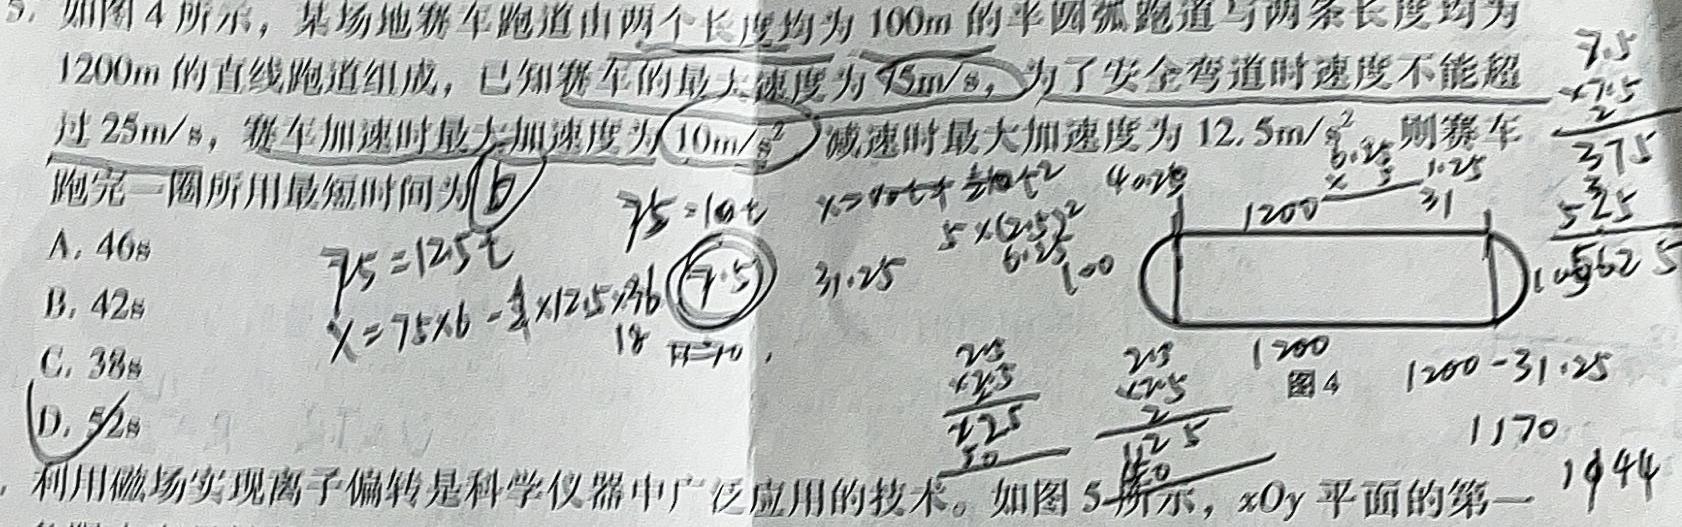 5. 如图 4 所示，某场地赛车跑道由两个长度均为 100m 的半圆弧跑道与两条长度均为
1200m 的直线跑道组成，已知赛车的最大速度为 75m/s，为了安全弯道时速度不能超
过 25m/s，赛车加速时最大加速度为 10m/s² 减速时最大加速度为 12.5m/s² 则赛车
跑完一圈所用最短时间为
A. 46s
B. 42s
C. 38s
D. 52s
75=12.5t
75=10t
7.5
31.25
5×(2.5)²
6.25
100
1200
31
1.25
7.5
×7.5
375
525
5625
1200
图 4
1200-31.25
1170
1944
25
×2.5
125
50
利用磁场实现离子偏转是科学仪器中广泛应用的技术。如图 5 所示，xOy 平面的第一